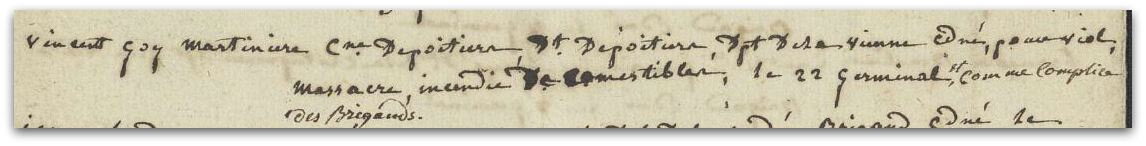 Vincent Goy Martiniere Cne Depoitiers, Dt. Depoitiers, Dpt Dela vienne Cdné, pour viol,
massacre, incendie De comestibles, le 22 Germinal st, Comme Complice
des Brigands.
Brigand Cdné le